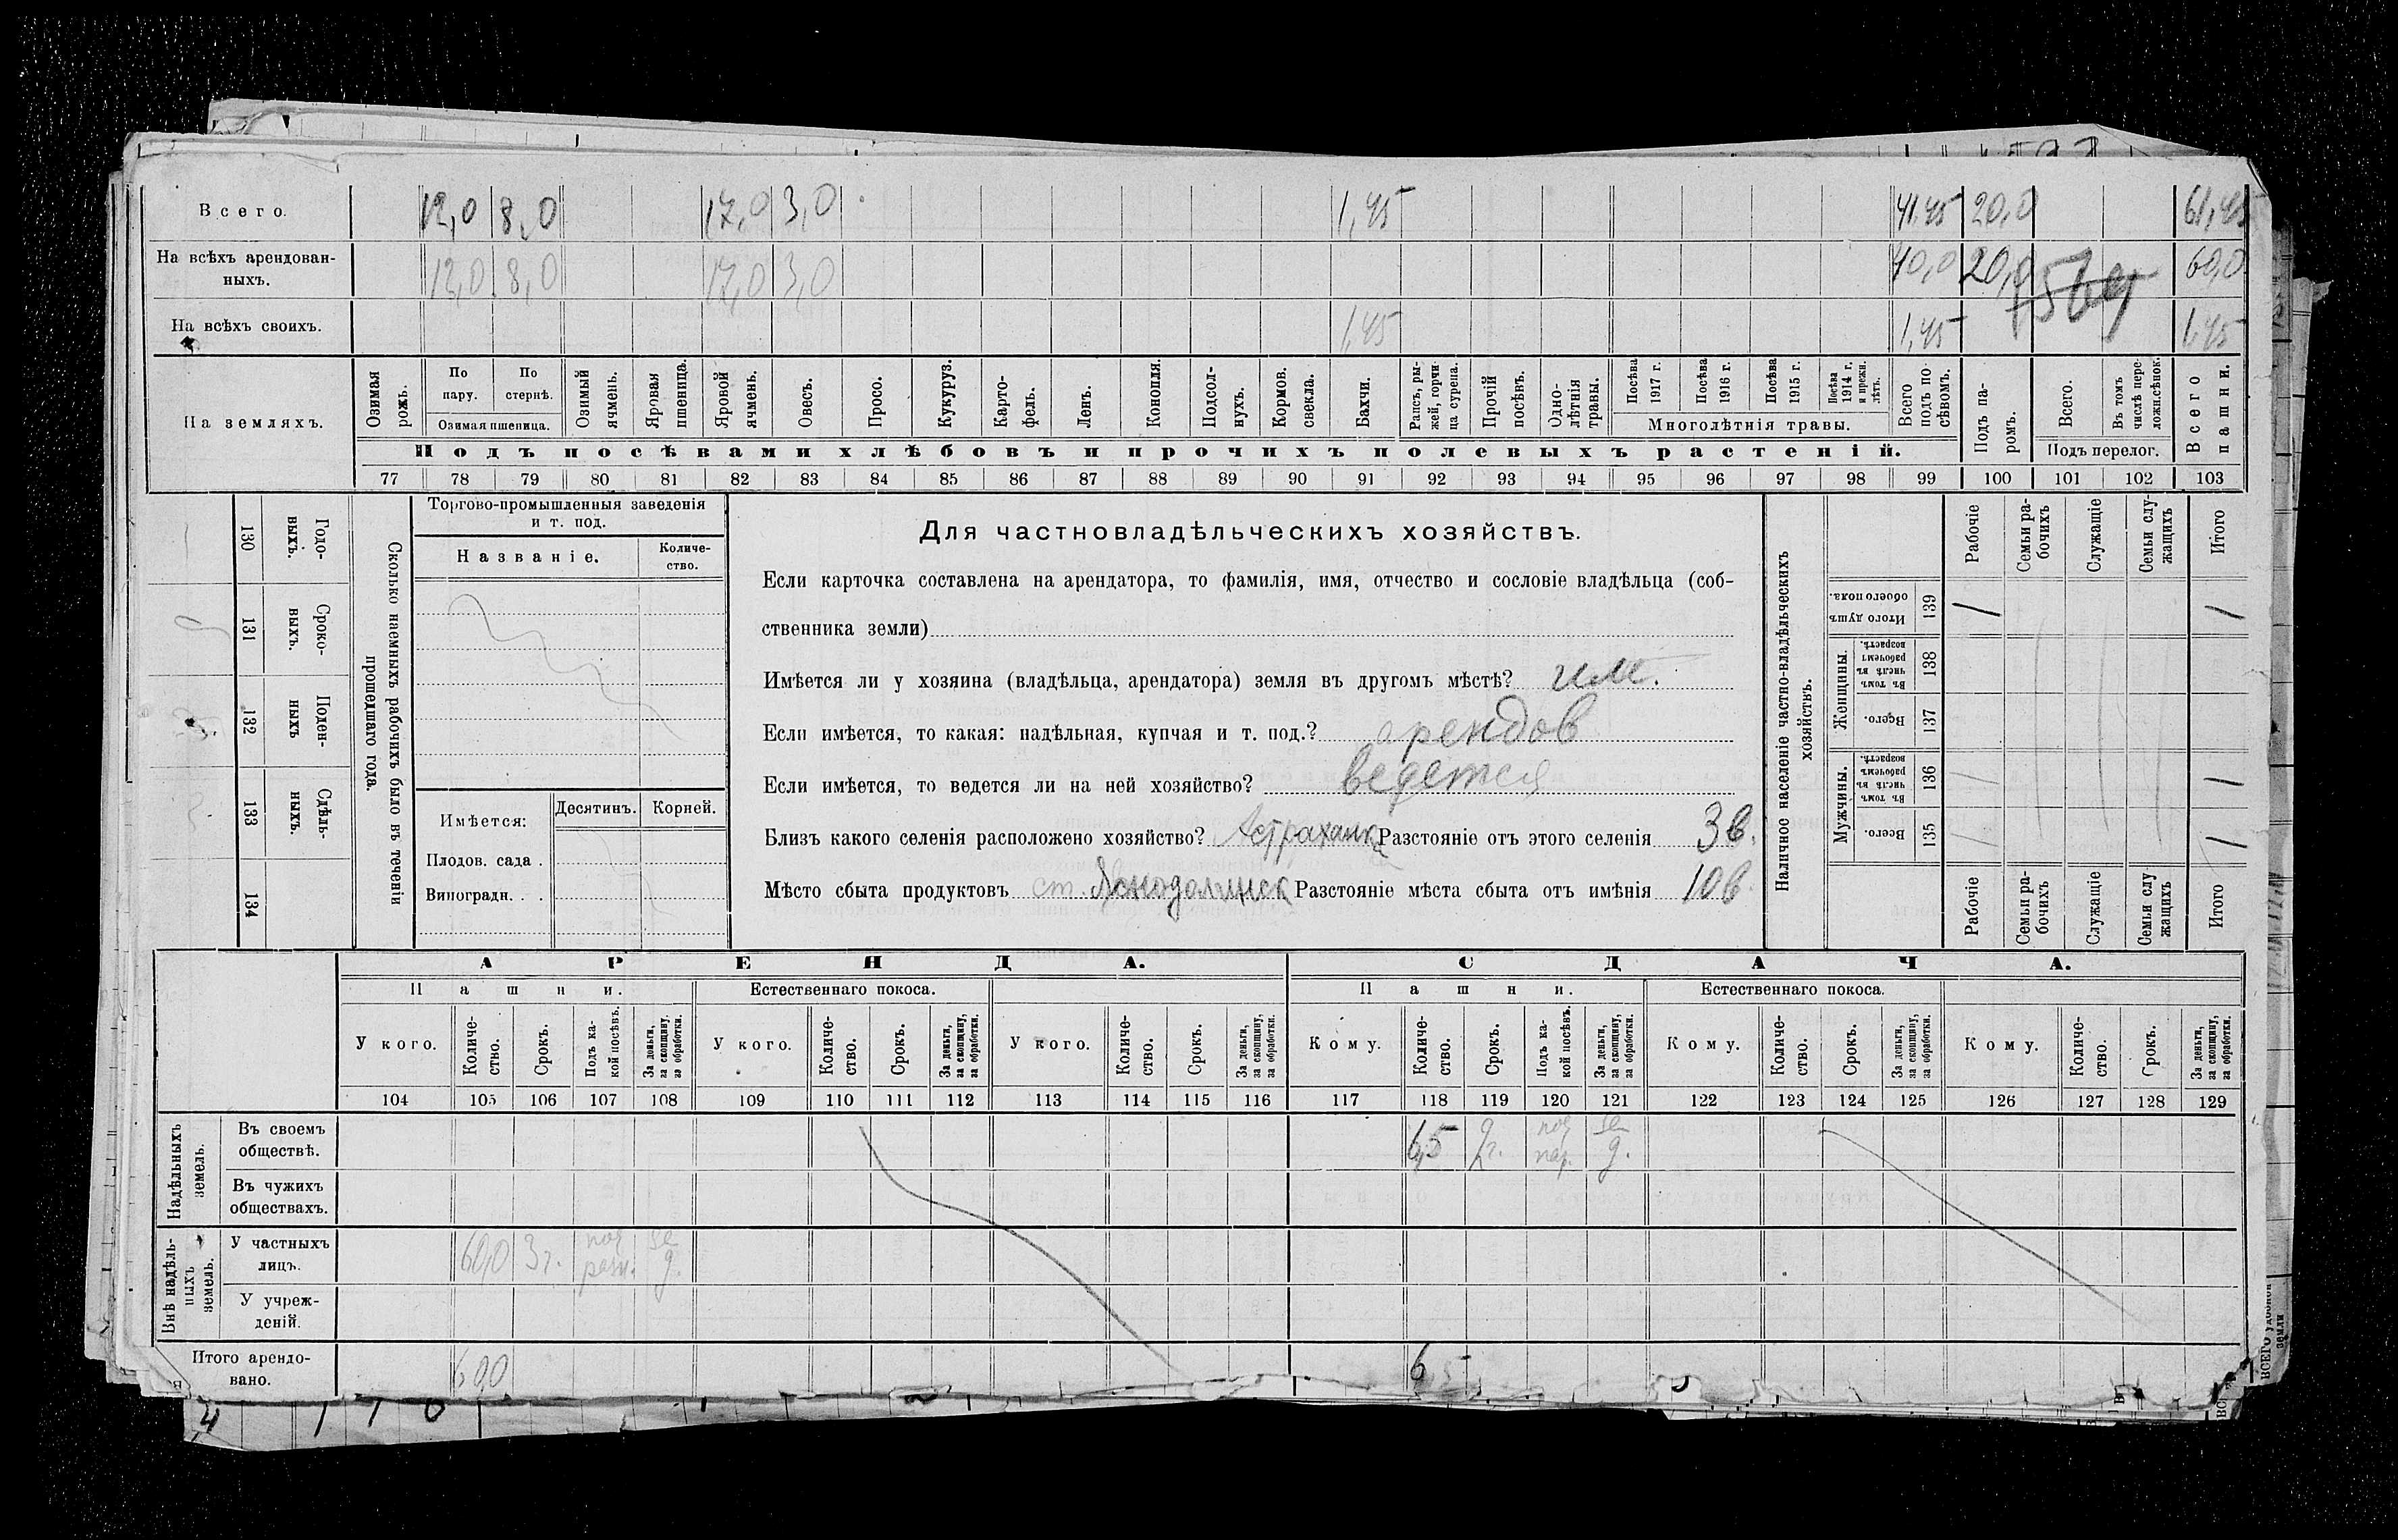 Всего. 12,0 8,0 17,0 3,0 1,45 41,45 20,0 61,45
На всѣхъ арендован-
ныхъ. 12,0 8,0 17,0 3,0 40,0 20,0 60,0
На всѣхъ своихъ. 1,45 1,45 1,45
На земляхъ.
Озимая рожь.
По пару.
По стернѣ.
Озимая пшеница.
Озимый ячмень.
Яровая пшеница.
Яровой ячмень.
Овесъ.
Просо.
Кукуруз.
Карто-
фель.
Ленъ.
Конопля.
Подсол-
нухъ.
Кормов. свекла.
Бахчи.
Рапсъ, ры-
жей, горчи
ца сурепа.
Прочій посѣвъ.
Одно-
лѣтнія травы.
Посѣва 1917 г.
Посѣва 1916 г.
Посѣва 1915 г.
Посѣва 1914 г. и прежн. лѣтъ.
Многолѣтнія травы.
Всего подъ по-
сѣвомъ.
Подъ па-
ромъ.
Всего.
Въ томъ числѣ пере
ложн.сѣнок.
Подъ перелог.
Всего пашни.
Подъ посѣвами хлѣбовъ и прочихъ полевыхъ растеній.
77 78 79 80 81 82 83 84 85 86 87 88 89 90 91 92 93 94 95 96 97 98 99 100 101 102 103
130 Годо-
ныхъ.
131 Сроко-
ныхъ.
132 Поден-
ныхъ
133 Сдѣль-
ныхъ.
134
Сколько наемныхъ рабочихъ было въ теченіи
прошедшаго года.
Торгово-промышленныя заведенія
и т. под.
Названіе.
Количе-
ство.
Имѣется: Десятинъ. Корней.
Плодов. сада .
Виноградн. . .
Для частновладѣльческихъ хозяйствъ.
Если карточка составлена на арендатора, то фамилія, имя, отчество и сословіе владѣльца (соб-
ственника земли)
Имѣется ли у хозяина (владѣльца, арендатора) земля въ другомъ мѣстѣ? им.
Если имѣется, то какая: надѣльная, купчая и т. под.? арендов
Если имѣется, то ведется ли на ней хозяйство? ведется
Близъ какого селенія расположено хозяйство? Астраханка Разстояніе отъ этого селенія 3 в.
Мѣсто сбыта продуктовъ ст. Разстояніе мѣста сбыта отъ имѣнія 10 в.
Наличное населеніе частно-владѣльческихъ
хозяйствъ.
Рабочіе
Семьи ра-
бочихъ
Служащіе
Семьи слу-
жащихъ
Итого
Итого душъ обоего пола. 139
Женщины.
Въ томъ числѣ въ рабочемъ возрастѣ. 138
Всего. 137
Мужчины.
Въ томъ числѣ въ рабочемъ возрастѣ. 136
Всего. 135
Рабочіе
Семьи ра-
бочихъ
Служащіе
Семьи слу
жащихъ
Итого
АРЕНДА. СДАЧА.
Пашни. Естественнаго покоса. Пашни. Естественнаго покоса.
У кого.
Количе-
ство.
Срокъ.
Подъ ка-
кой посѣвъ.
За деньги, за скопщину, за обработки.
У кого.
Количе-
ство.
Срокъ.
За деньги, за скопщину, за обработки.
У кого.
Количе-
ство.
Срокъ.
За деньги, за скопщину, за обработки.
Кому.
Количе-
ство.
Срокъ.
Подъ ка-
кой посѣвъ.
За деньги, за скопщину, за обработки.
Кому.
Количе-
ство.
Срокъ.
За деньги, за скопщину, за обработки.
Кому.
Количе-
ство.
Срокъ.
За деньги, за скопщину, за обработки.
104 105 106 107 108 109 110 111 112 113 114 115 116 117 118 119 120 121 122 123 124 125 126 127 128 129
Надѣльныхъ
земель.
Въ своемъ
обществѣ. 2г. под пар. за д.
Въ чужихъ
обществахъ.
Внѣ надѣль-
ныхъ
земель.
У частныхъ
лицъ. 60,0 3г. под разн. за д.
У учреж-
деній.
Итого арендо-
вано. 60,0